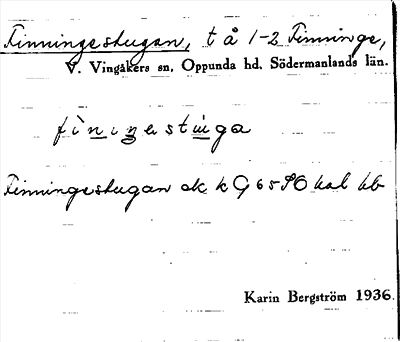 Finningestugan, t å 1-2 Finninge,
V. Vingåkers sn, Oppunda hd, Södermanlands län.
Finningestugan ek k G 65 SO bal bb
Karin Bergström 1936.